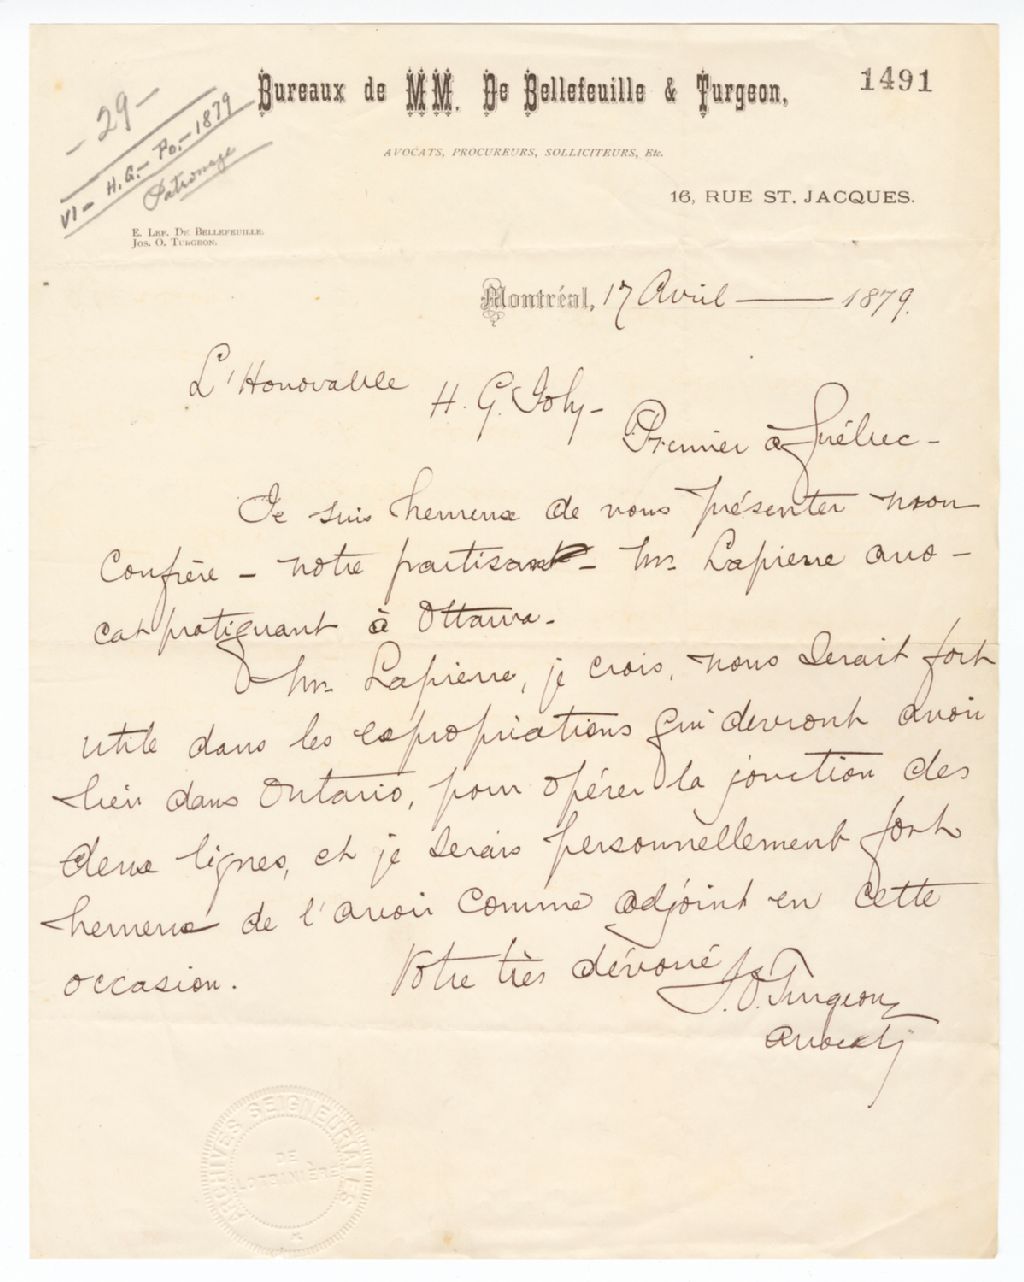 Bureaux de MM. De Bellefeuille & Turgeon,
1491
- 29 -
VI - H. G. - Po. - 1879
Patronage
AVOCATS, PROCUREURS, SOLLICITEURS, Etc.
16, RUE ST. JACQUES.
E. LEF. DE BELLEFEUILLE.
JOS. O. TURGEON.
Montréal, 17 Avril — 1879.
L'Honorable
H. G. Joly -
Premier à Québec -
Je suis heureux de vous présenter mon
Confrère - notre partisan - Mr Lapierre avo-
cat pratiquant à Ottawa.
Mr Lapierre, je crois, nous serait fort
utile dans les expropriations qui devront avoir
lieu dans Ontario, pour opérer la jonction des
deux lignes, et je serais personnellement fort
heureux de l'avoir comme adjoint en cette
occasion. Votre très dévoué
J. O. Turgeon
Avocat
ARCHIVES SEIGNEURIALES
DE
LOTBINIÈRE